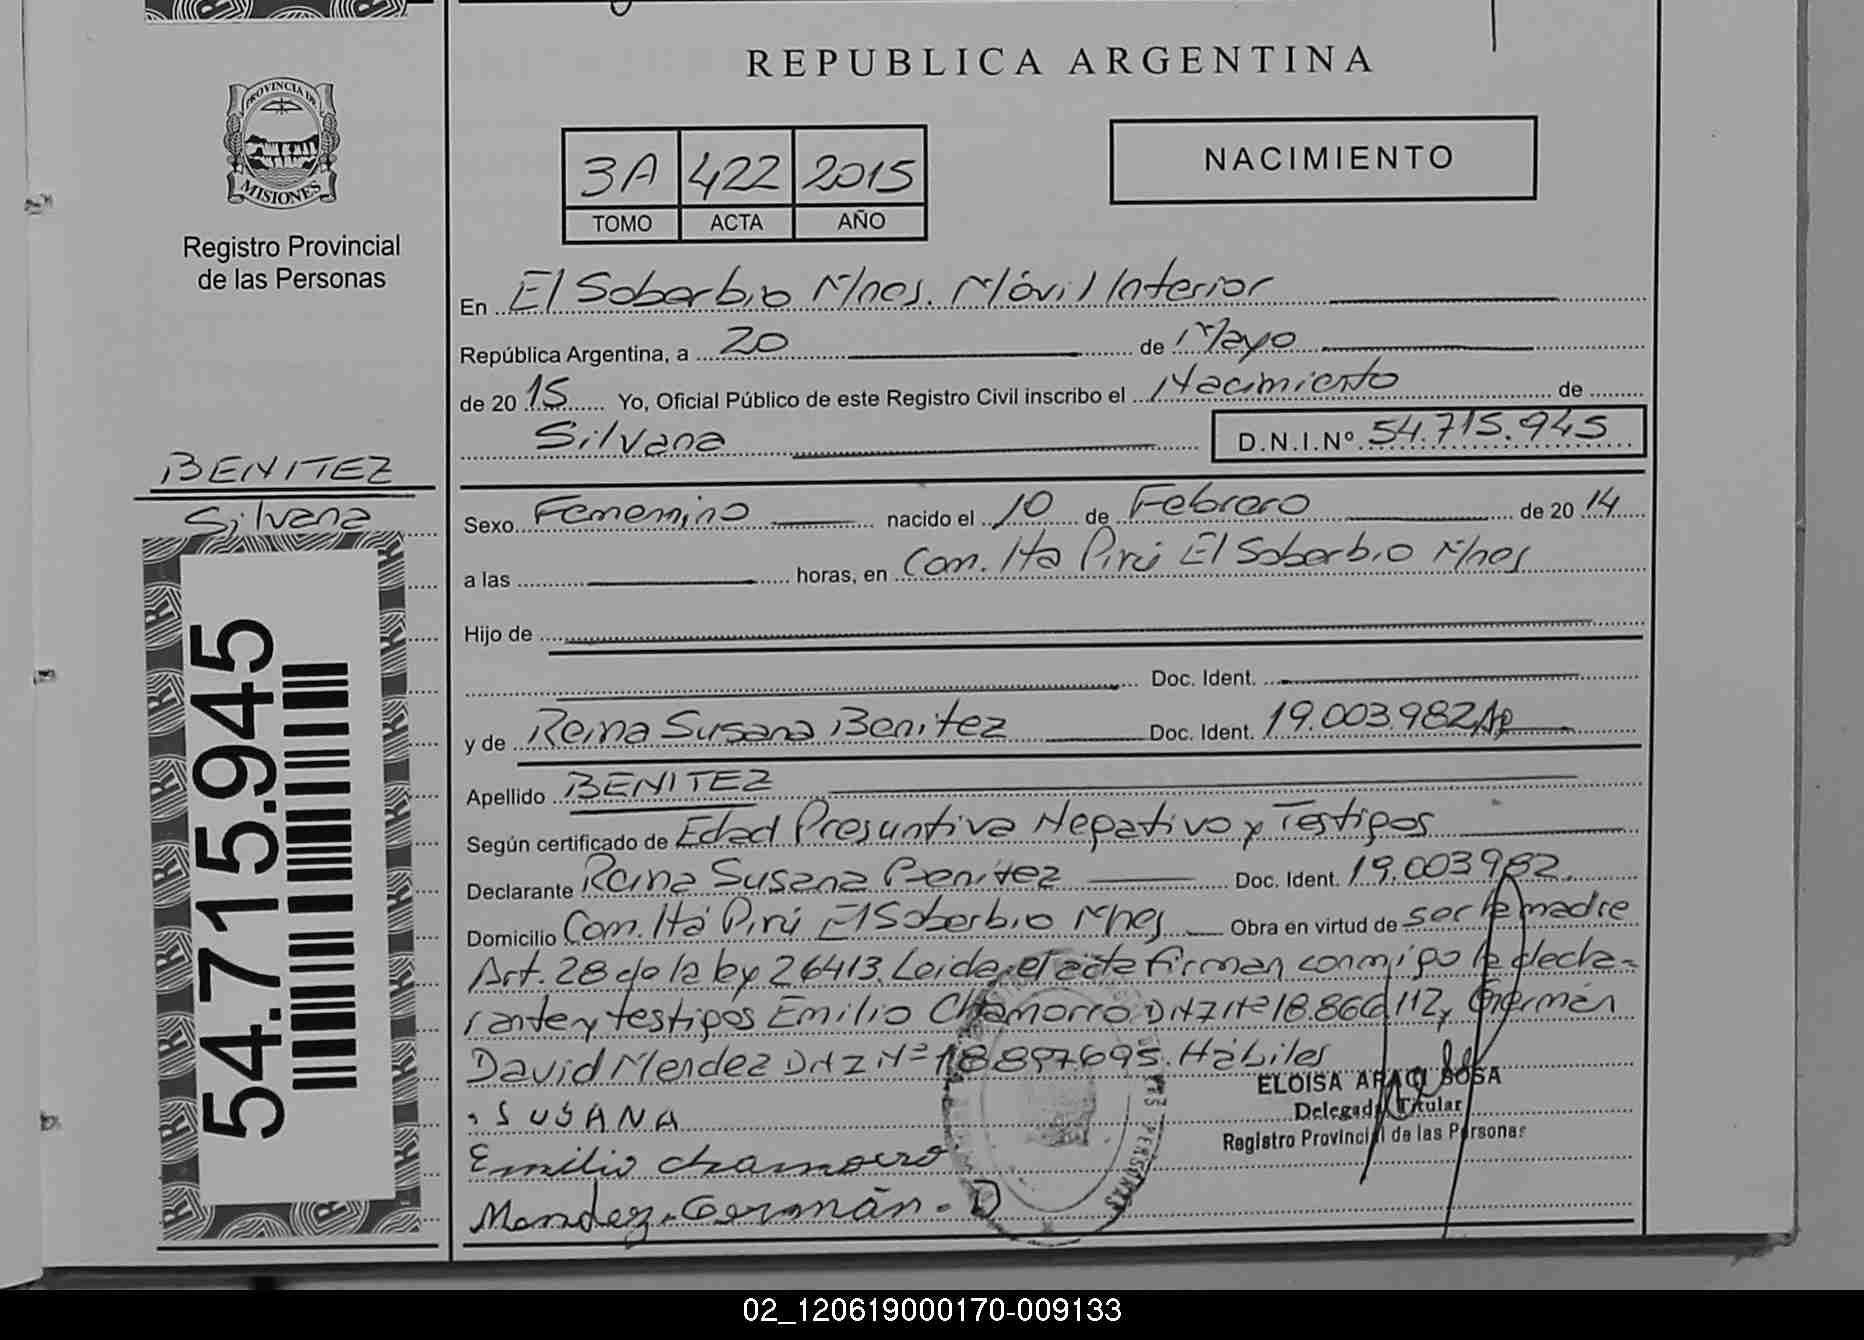 REPUBLICA ARGENTINA
PROVINCIA DE
MISIONES
Registro Provincial
de las Personas
3A 422 2015
TOMO ACTA AÑO
NACIMIENTO
En El Soberbio Mnes. Móvil Interior
República Argentina, a 20 de Mayo
de 2015 Yo, Oficial Público de este Registro Civil inscribo el Nacimiento de
Silvana D.N.I.Nº 54.715.945
BENITEZ
Silvana
54.715.945
Sexo Femenino nacido el 10 de Febrero de 2014
a las horas, en Com. Itá Pirú El Soberbio Mnes
Hijo de
Doc. Ident.
y de Reina Susana Benitez Doc. Ident. 19.003.982
Apellido BENITEZ
Según certificado de Edad Presuntiva Negativo y Testigos
Declarante Reina Susana Benitez Doc. Ident. 19.003982.
Domicilio Com. Itá Pirú El Soberbio Mnes Obra en virtud de ser la madre
Art. 28 de la ley 26413. Leida el acta firman conmigo la decla-
rante y testigos Emilio Chamorro DNI Nº 18.866.112 y Germán
David Mendez DNI Nº 18897695. Hábiles
SUSANA
Emilio chamorro
Mendez. Germán. D
ELOISA ARACI SOSA
Delegada Titular
Registro Provincial de las Personas
02_120619000170-009133